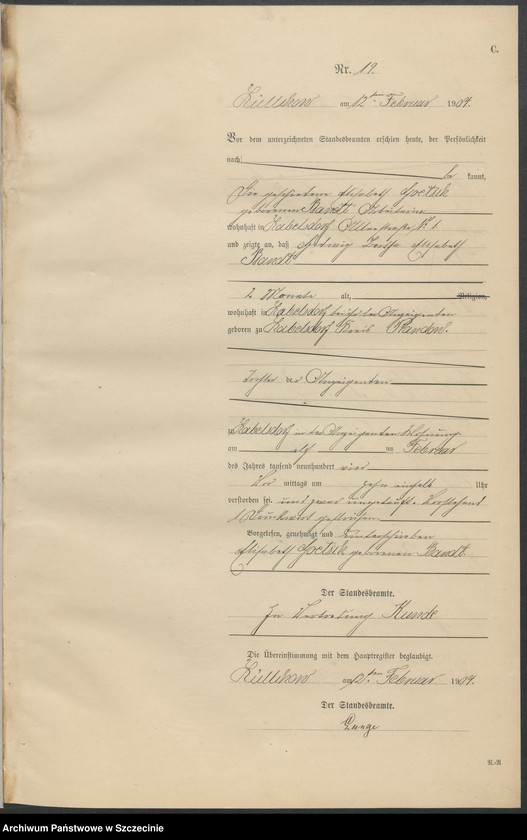 C.
Nr. 19.
Züllchow am 12ten Februar 1904.
Vor dem unterzeichneten Standesbeamten erschien heute, der Persönlichkeit
nach be kannt,
die geschiedene Elisabeth Goetsch
geborenen Bandt Arbeiterin
wohnhaft in Habelsdorf № 1
und zeigte an, daß Hedwig Bertha Elisabeth
Bandt
2 Monate alt, Religion,
wohnhaft in Habelsdorf bei der Anzeigenden
geboren zu Habelsdorf Kreis Randow.
Tochter der Anzeigenden
zu Habelsdorf in der Anzeigenden Wohnung
am elf ten Februar
des Jahres tausend neunhundert vier
Vor mittags um zehn einhalb Uhr
verstorben sei. und zwar ungetauft. Vorstehend
1 Druckwort gestrichen.
Vorgelesen, genehmigt und unterschrieben
Elisabeth Goetsch geborenen Bandt.
Der Standesbeamte.
In Vertretung Kunde
Die Übereinstimmung mit dem Hauptregister beglaubigt.
Züllchow am 12ten Februar 1904.
Der Standesbeamte.
Lange
Archiwum Państwowe w Szczecinie